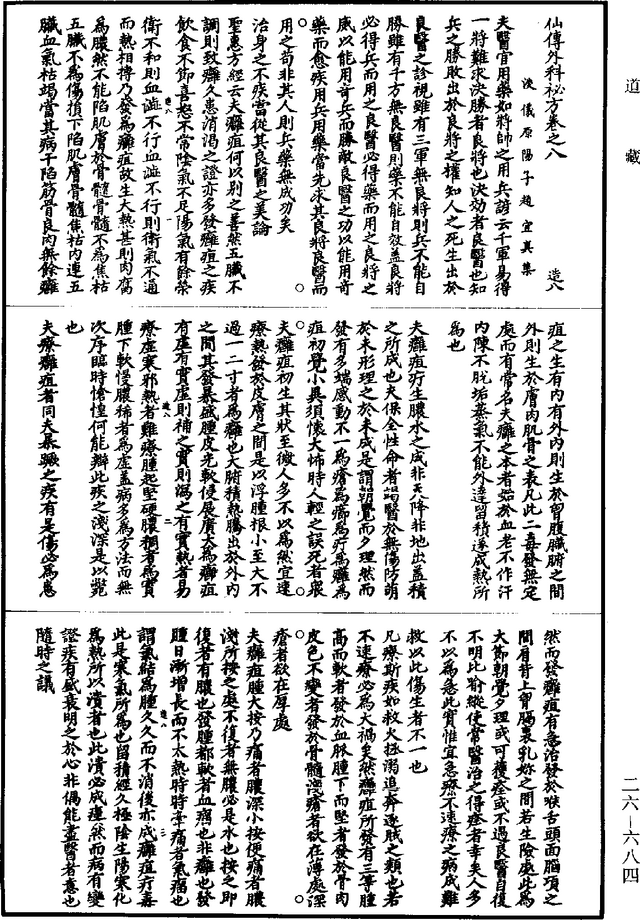 道藏
仙傳外科秘方卷之八
造八
浚儀原陽子趙宜真集
夫醫官用藥如將帥之用兵諺云千軍易得
一將難求決勝者良將也決効者良醫也知
兵之勝敗出於良將之權知人之死生出於
良醫之診視雖有三軍無良將則兵不能自
勝雖有千方無良醫則藥不能自效蓋良將
必得兵而用之良醫必得藥而用之良將之
威以能用奇兵而勝敵良醫之功以能用奇
藥而愈疾用兵用藥當先求其良將良醫而
用之苟非其人則兵藥無成功矣
治身之不疾當從其良醫之美論
聖惠方經云夫癰疽何以別之善然五臟不
調則致癰久患消渴之證亦多發癰疽之疾
飲食不節喜怒不常陰氣不足陽氣有餘榮
衛不和則血澁不行血澁不行則衛氣不通
而熱相摶乃發為癰疽故生大熱甚則肉腐
為膿然不能陷肌膚於骨髓骨髓不為焦枯
五臟不為傷損下陷肌膚骨髓焦枯內連五
臟血氣枯竭當其病干陷筋骨良肉無餘癰
疽之生有內有外內則生於胷腹臟腑之間
外則生於膚肉肌骨之表凡此二毒發無定
處而有常名夫癰之本者始於血老不作汗
內陳不脫垢蒸氣不能外達留積遂成熱所
為也
夫癰疽疔生膿水之成非天降非地出蓋積
之所成也夫保全性命者謁醫於無傷防萌
於未形理之於未成是謂朝覺而夕理然而
發有多端感動不一為瘡為癤為疔為癰為
疽初覺小異須懷大怖時人輕之誤死者衆
夫癰疽初生其狀至微人多不以為然宜速
療熱發於皮膚之間是以浮腫根小至大不
過一二寸者為癰也大腑積熱騰出於外內
之間其發暴盛腫皮光軟侵展廣大為癰疽
有虛有實虛則補之實則瀉之有實熱者易
療虛寒邪熱者難療腫起堅硬膿稠者為實
腫下軟慢膿稀者為虛蓋病多為方法而無
次序臨時愴惶何能辯此疾之淺深是以斃
也
夫療癰疽者同夫暴蹶之疾有是傷必為患
然而發癰疽有急治發於喉舌頭面腦項之
間肩背上胷膈裏乳妳之間若生險處此為
大節朝覺夕理或可獲痊或不遇良醫自復
不明比喻縱使常醫治之得痊者幸矣人多
不以為急此實惟宜急療不速療之病成難
救以此傷生者不一也
凡療斯疾如救火拯溺追奔逐賊之類也若
不速療必為大禍矣然癰疽所發有三等腫
高而軟者發於血脉腫下而堅者發於骨肉
皮色不變者發於骨髓淺瘡者欲在薄處深
瘡者欲在厚處
夫癰疽腫大按乃痛者膿深小按便痛者膿
淺所按之處不復者無膿必是水也按之即
復者有膿也發腫都軟者血瘤也非癰也發
腫日漸增長而不太熱時時牽痛者氣瘤也
謂氣結為腫久久而不消後亦成癰疽疔毒
此是寒氣所為也留積經久極陰生陽寒化
為熱所以潰者也此潰必成瘻然而病有變
證疾有盛衰明之於心非偶能盡醫者意也
隨時之議
二六—六八四